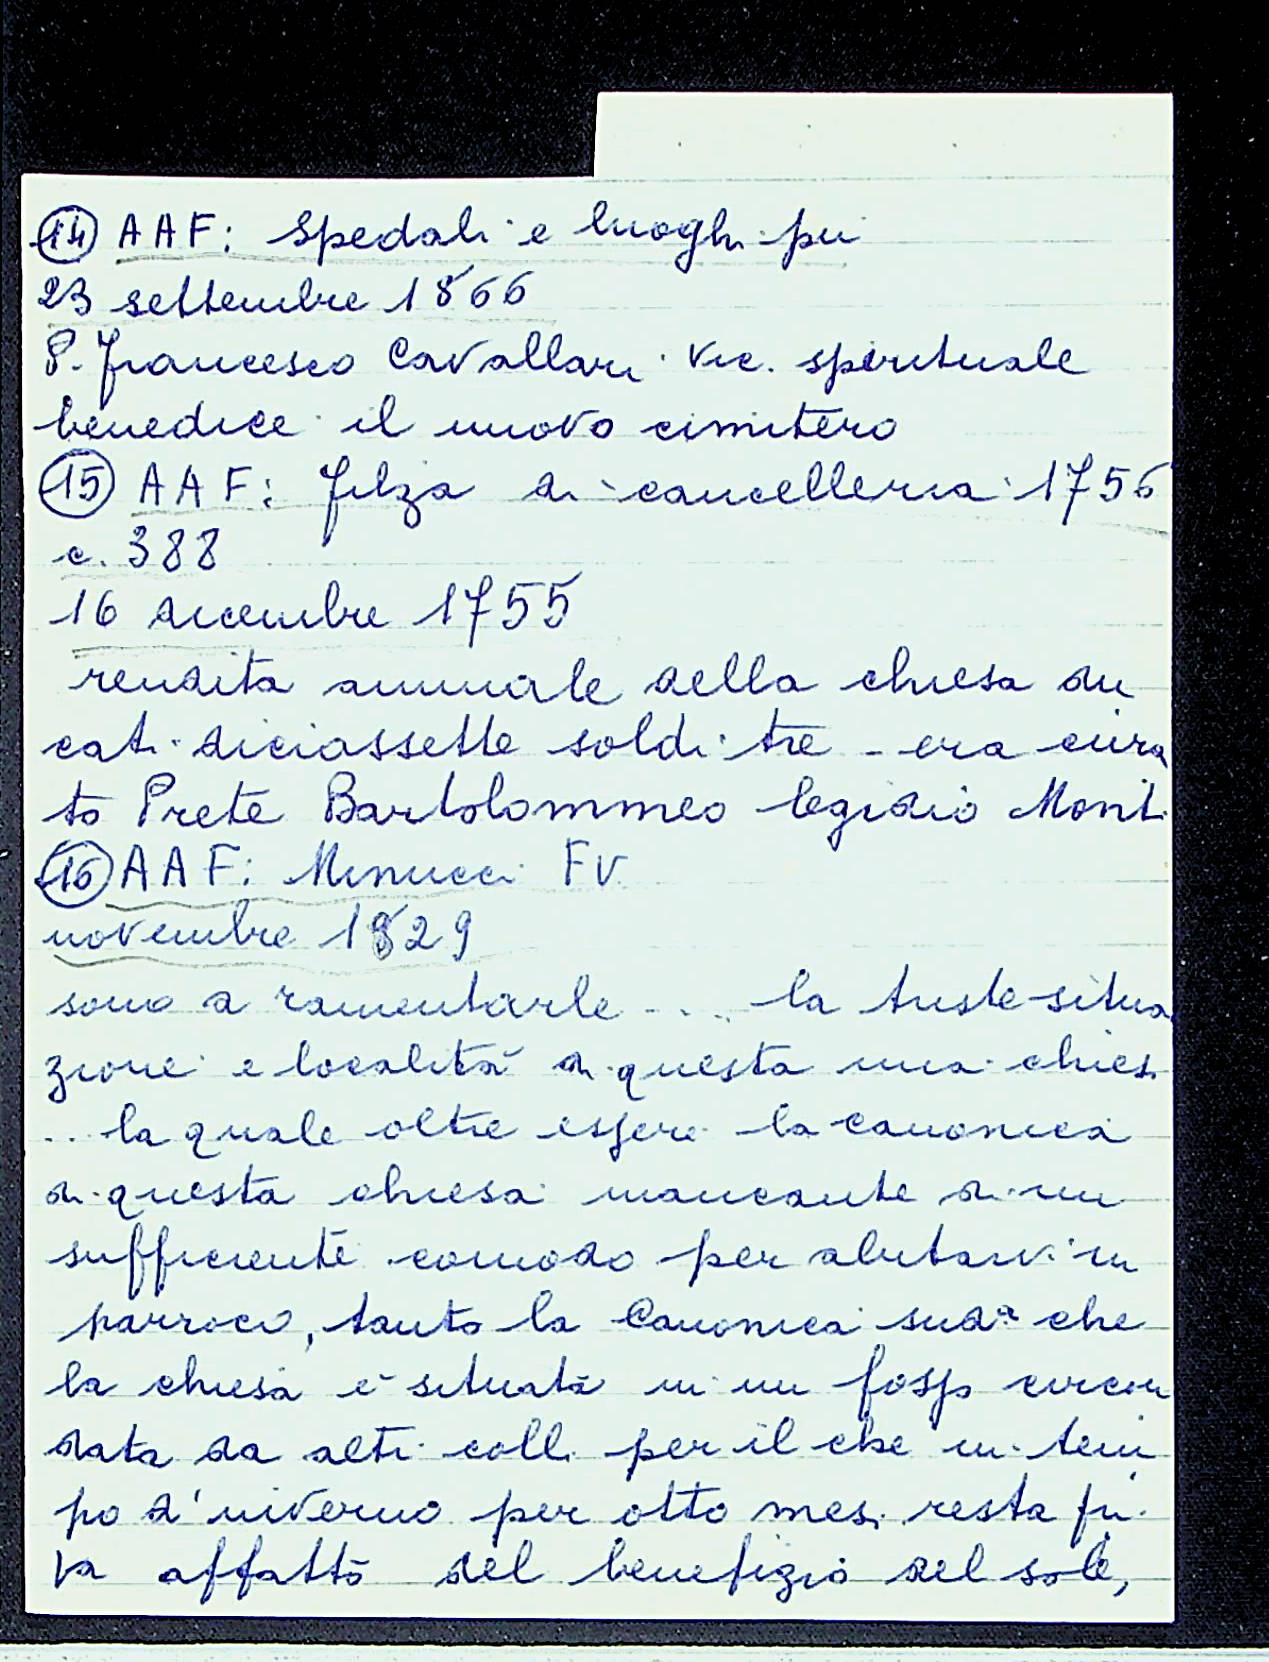 (14) AAF: Spedali e luoghi pii
23 settembre 1866
P. Francesco Cavallari Vic. spirituale
benedice il nuovo cimitero
(15) AAF: filza di cancelleria 1756
c. 388
16 dicembre 1755
rendita annuale della chiesa du
cati diciassette soldi tre - era cura
to Prete Bartolommeo Monti
(16) AAF: Minucci FV
novembre 1829
sono a ramentarle .... la triste situa
zione e località di questa mia chies.
... la quale oltre essere la canonica
di questa chiesa mancante di un
sufficiente comodo per abitarvi un
parroco, tanto la Canonica sudª che
la chiesa è situata in un fosso circon
data da alti colli per il che in tem
po d'inverno per otto mesi resta pri
va affatto del benefizio del sole,